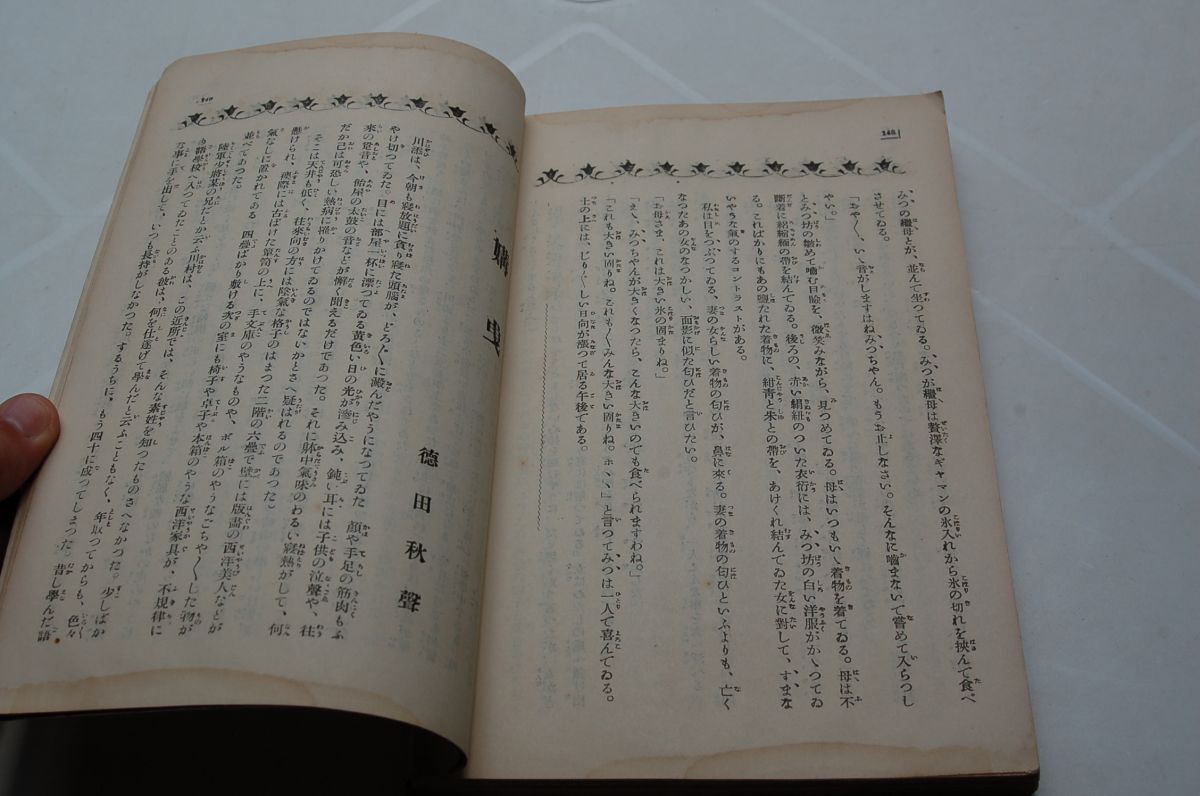 148
みつの繼母とが、並んで坐つてゐる。みつが繼母は贅澤なギヤマンの氷入れから氷の切れを挾んで食べ
させてゐる。
「おや〱、いゝ音がしますはねみつちやん。もうお止しなさい。そんなに嚙まないで嘗めて入らつし
やい。」
とみつ坊の皺めて嚙む目瞼を、微笑みながら、見つめてゐる。母はいつもいゝ着物を着てゐる。母は不
斷着に絽縮緬の帶を結んでゐる。後ろの、赤い絹紐のついた衣桁には、みつ坊の白い洋服がかゝつてゐ
る。こればかりにもあの墮たれた着物に、紺靑と朱との帶を、あけくれ結んでゐた女に對して、すまな
いやうな氣のするコントラストがある。
私は目をつぶつてゐる、妻の女らしい着物の匂ひが、鼻に來る。妻の着物の匂ひといふよりも、亡く
なつたあの女のなつかしい、面影に似た匂ひだと言ひたい。
「お母さま、これは大きい氷の固まりね。」
「えゝ、みつちやんが大きくなつたら、こんな大きいのでも食べられますわね。」
「これも大きい固りね。これも〱みんな大きい固りね。ホヽヽ」と言つてみつは一人で喜んでゐる。
土の上には、じり〱しい日向が漲つて居る午後である。
149
曳
德田秋聲
川添は、今朝も寢放題に貪り寢た頭腦が、どろ〱に澱んだやうになつてゐた 顏や手足の筋肉もふ
やけ切つてゐた。目には部屋一杯に漂つてゐる黃色い日の光が滲み込み、鈍い耳には子供の泣聲や、往
來の跫音や、飴屋の太鼓の音などが懈く聞えるだけであつた。それに躰中氣味のわるい寢熱がして、何
だか己は可恐しい熱病に罹りかけてゐるのではないかとさへ疑はれるのであつた
そこは天井も低く、往來向の方には陰氣な格子のはまつた二階の六疊で壁には版畵の西洋美人などが
懸けられ、襖際には古ぼけた簞笥の上に、手文庫のやうなものや、ボル箱のやうなごちや〱した物が
氣なしに置かれてある 四疊ばかり敷ける次の室にも椅子や卓子や本箱のやうな西洋家具が、不規律に
並べてあつた。
陸軍少將某の兄だとか云ふ川村は、この近所では、そんな素姓を知つたものさへなかつた。少しばか
語學校へ入つてゐたことのある彼は、何を仕遂げて學んだと云ふこともなく、年取つてからも、色々
な事に手を出して、いつも長持がしなかつた。するうちに、もう四十に成つてしまつた 昔し學んだ語